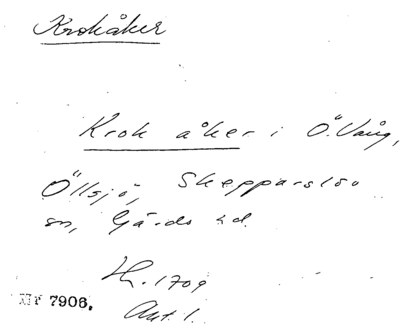 Krokåker
Krok åker i Ö. Vång,
Öllsjö, Skepparslöv
sn, Gärds hd.
Hr. 1709
Akt. 1.
Nr 7906.